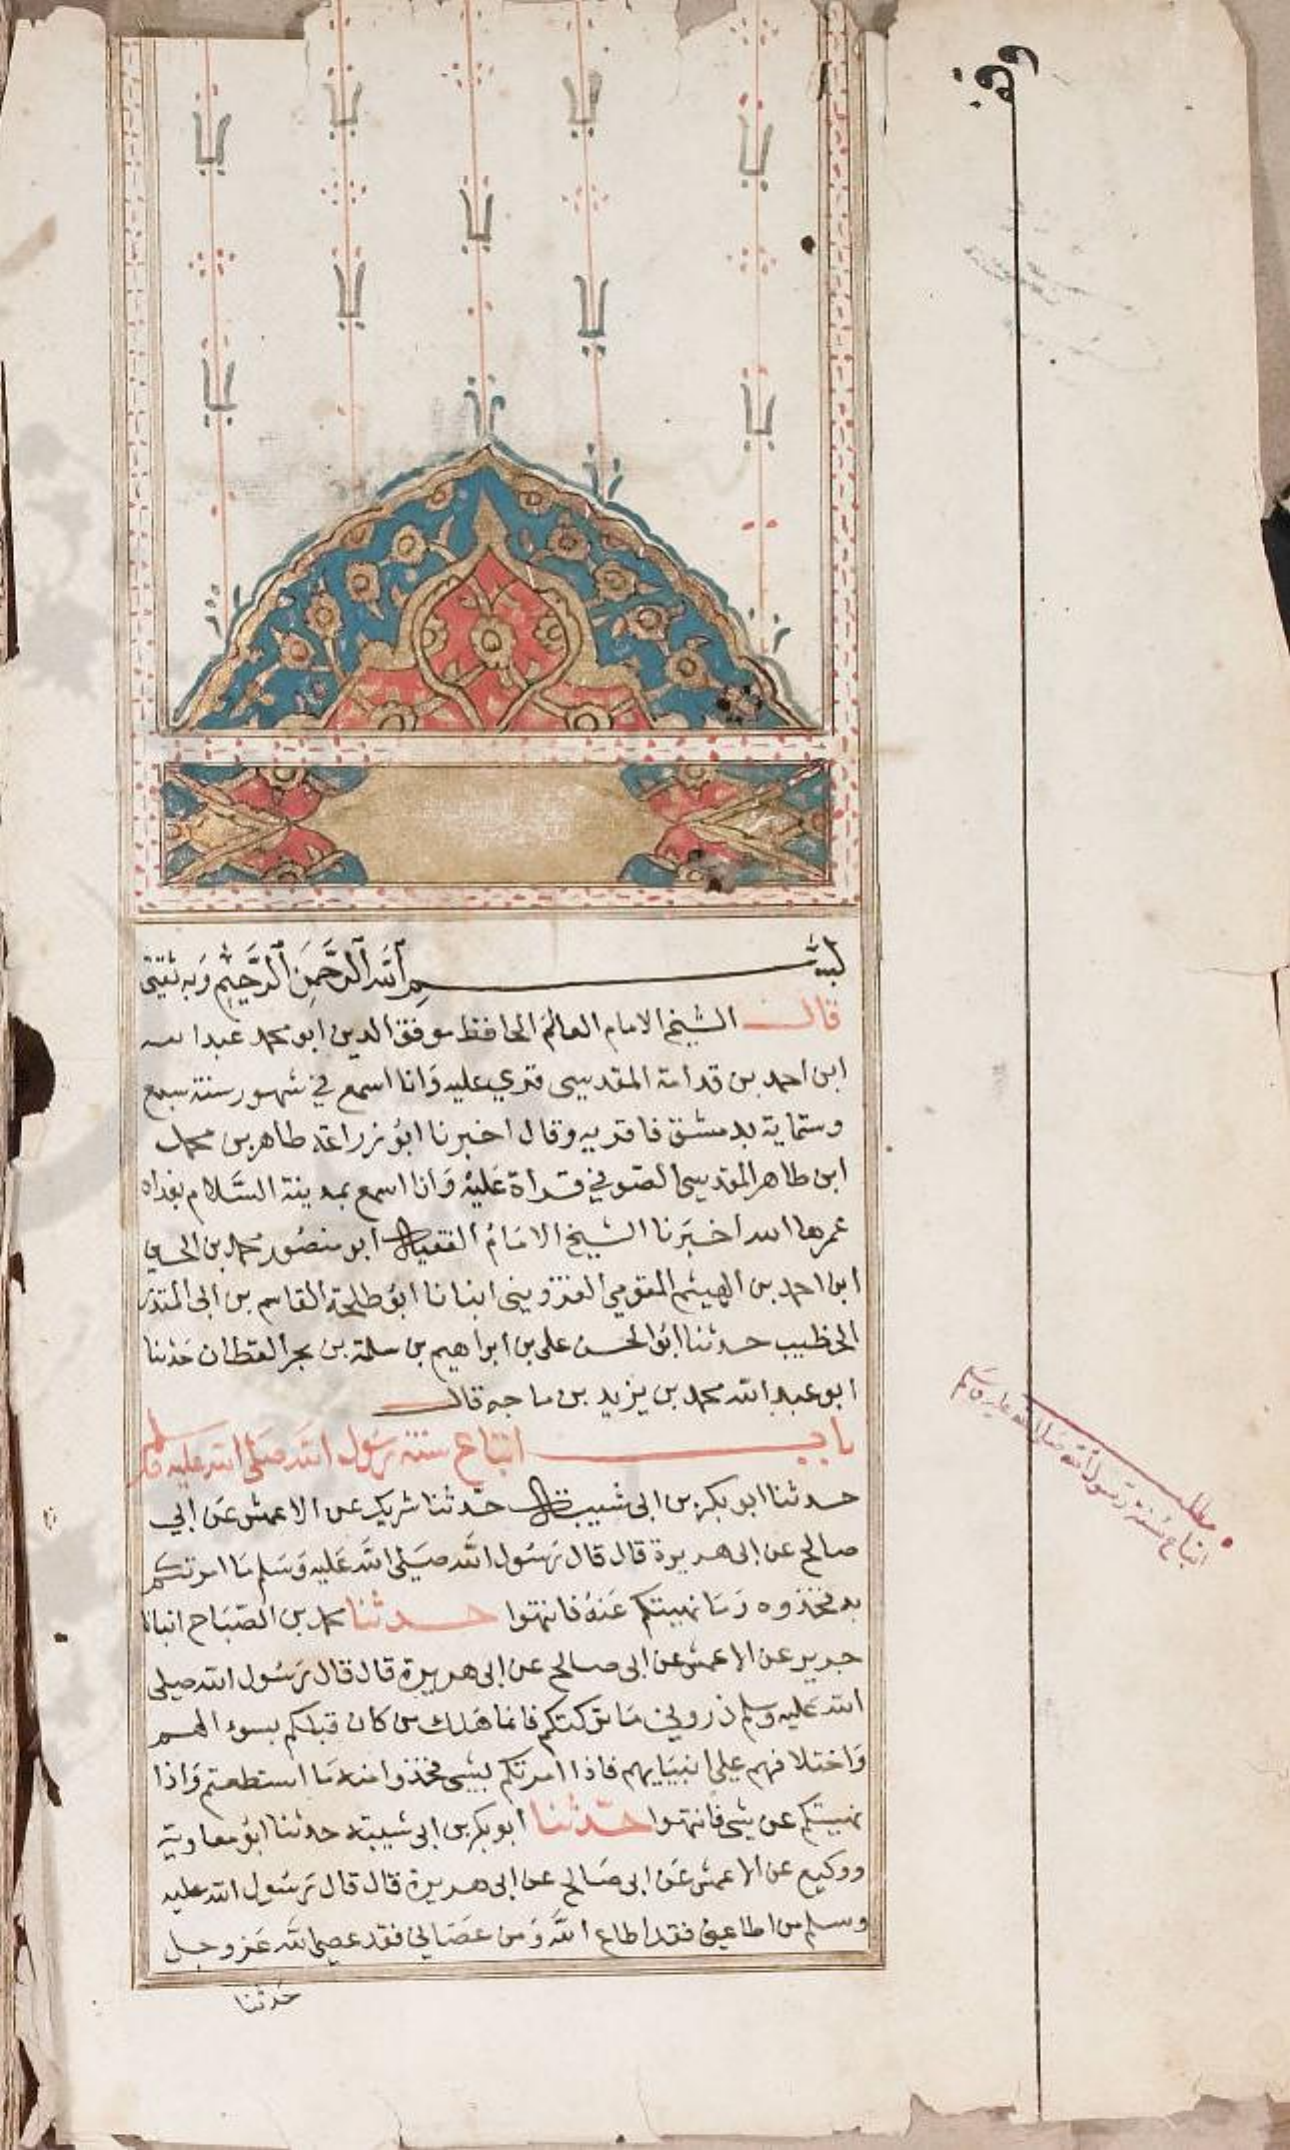 وقف
بسم الله الرحمن الرحيم وبه ثقتي
قال الشيخ الامام العالم الحافظ موفق الدين ابو محمد عبد الله
ابن احمد بن قدامة المقدسي قري عليه وانا اسمع في شهور سنة سبع
وستماية بدمشق فاقر به وقال اخبرنا ابو زراعة طاهر بن محمد
ابن طاهر المقدسي الصوفي قراة عليه وانا اسمع بمدينة السلام بغداد
عمرها الله اخبرنا الشيخ الامام الفقيه ابو منصور محمد بن الحسين
ابن احمد بن الهيثم المقومي القزويني انبانا ابو طلحة القاسم بن ابي المنذر
الخطيب حدثنا ابو الحسن علي بن ابراهيم بن سلمة بن بحر القطان حدثنا
ابو عبد الله محمد بن يزيد بن ماجه قال
باب اتباع سنة رسول الله صلى الله عليه وسلم
حدثنا ابو بكر بن ابي شيبة قال حدثنا شريك عن الاعمش عن ابي
صالح عن ابي هريرة قال قال رسول الله صلى الله عليه وسلم ما امرتكم
به فخذوه وما نهيتكم عنه فانتهوا حدثنا محمد بن الصباح انبانا
جرير عن الاعمش عن ابي صالح عن ابي هريرة قال قال رسول الله صلى
الله عليه وسلم ذروني ما تركتكم فانما هلك من كان قبلكم بسوء الهم
واختلافهم على انبيايهم فاذا امرتكم بشي فخذوا منه ما استطعتم واذا
نهيتكم عن شي فانتهوا حدثنا ابو بكر بن ابي شيبة حدثنا ابو معاوية
ووكيع عن الاعمش عن ابي صالح عن ابي هريرة قال قال رسول الله عليه
وسلم من اطاعني فقد اطاع الله ومن عصاني فقد عصى الله عز وجل
حدثنا
مطلب
اتباع سنة رسول الله صلى الله عليه وسلم